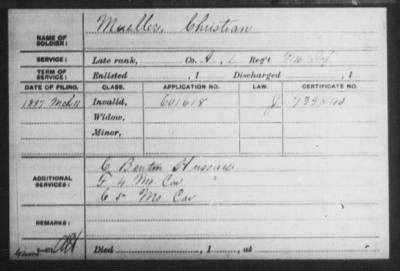 NAME OF SOLDIER: Mueller, Christian
SERVICE: Late rank, Co. A, 1 Reg't Mo. Inf
TERM OF SERVICE: Enlisted , 1 Discharged , 1
DATE OF FILING. CLASS. APPLICATION NO. LAW. CERTIFICATE NO.
1887 Mch 11 Invalid, 601618 J
Widow,
Minor,
ADDITIONAL SERVICES:
C Benton Hussars
F 4 Mo Cav "
C 5 Mo Cav
REMARKS:
Died , 1 , at